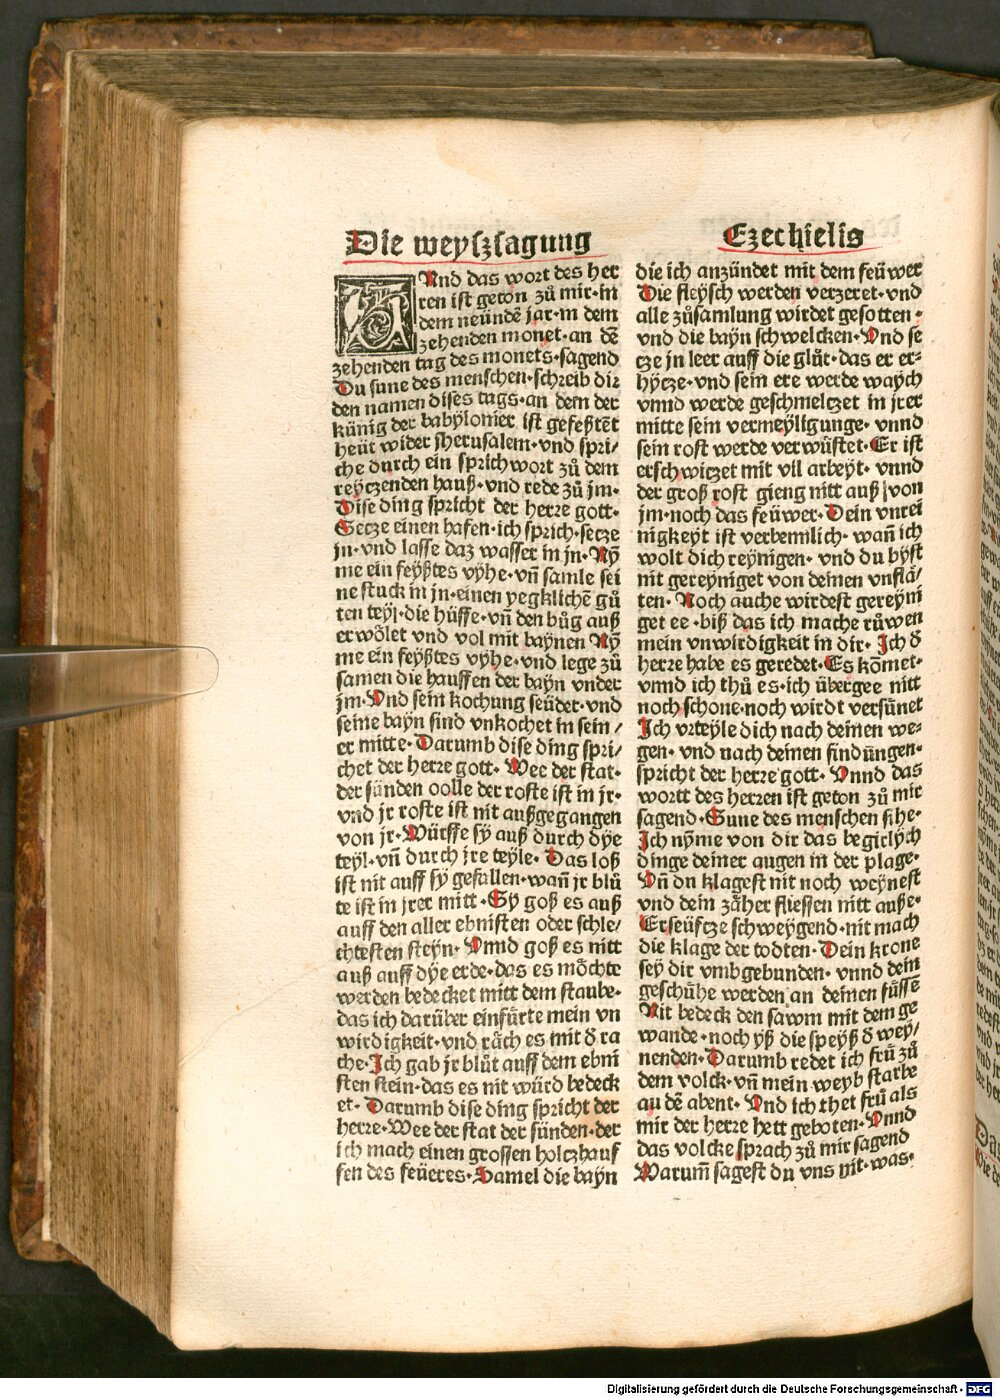 Die weyszsagung
Ezechielis
And das wort des her
ren ist geton zů mir·in
dem neündē jar·in dem
zehenden monet·an dē
zehenden tag des monets·sagend
Du sune des menschen·schreib dir
den namen dises tags·an dem der
künig der babylonier ist gefeßtet
heüt wider jherusalem·vnd spri/
che durch ein sprichwort zů dem
reyczenden hauß·vnd rede zů jm·
Dise ding spricht der herre gott·
Secze einen hafen·ich sprich·secze
jn·vnd lasse daz wasser in jn·Ny̆
me ein feyßtes vyhe·vñ samle sei
ne stuck in jn·einen yegklichē gů
ten teyl·die hüffe·vñ den bůg auß
erwőlet vnd vol mit baynen Ny̆
me ein feyßtes vyhe·vnd lege zů
samen die hauffen der bayn vnder
jm·Vnd sein kochung seüdet·vnd
seine bayn sind vnkochet in sein/
er mitte·Darumb dise ding spri/
chet der herre gott·Wee der stat·
der sünden oolle der roste ist in jr·
vnd jr roste ist nit außgegangen
von jr·Würffe sy auß durch dye
teyl·vñ durch jre teyle·Das loß
ist nit auff sy gefallen·wañ jr blů
te ist in jrer mitt·Sy goß es auß
auff den aller ebnisten oder schle/
chtesten steyn·Vnnd goß es nitt
auß auff dye erde·das es mőchte
werden bedecket mitt dem staube·
das ich darüber einfürte mein vn
wirdigkeit·vnd rách es mit ð ra
che·Ich gab jr blůt auff dem ebni
sten stein·das es nit würd bedeck
et·Darumb dise ding spricht der
herre·Wee der stat der sünden·der
ich mach einen grossen holczhauf
fen des feüeres·Samel die bayn
die ich anzündet mit dem feüwer
Die fleysch werden verzeret·vnd
alle zůsamlung wirdet gesotten·
vnd die bayn schwelcken·Vnd se
cze in leer auff die glůt·das er er-
hycze·vnd sein ere werde waych
vnnd werde geschmelczet in jrer
mitte sein vermeyllgunge·vnnd
sein rost werde verwüstet·Er ist
erschwiczet mit vil arbeyt·vnnd
der groß rost gieng nitt auß von
jm·noch das feüwer·Dein vnrei
nigkeyt ist verbemlich·wañ ich
wolt dich reynigen·vnd du byst
nit gereyniget von deinen vnflá/
ten·Noch auche wirdest gereyni
get ee·biß das ich mache růwen
mein vnwirdigkeit in dir·Ich ð
herre habe es geredet·Es kőmet·
vnnd ich thů es·ich übergee nitt
noch schone·noch wirdt versünet
Ich vrteyle dich nach deinen we-
gen·vnd nach deinen findüngen·
spricht der herre gott·Vnnd das
wortt des herren ist geton zů mir
sagend·Sune des menschen sihe·
Ich nyme von dir das begirlych
dinge deiner augen in der plage·
Vñ dn klagest nit noch weynest
vnd dein záher fliessen nitt auße·
Erseüfcze schweygend·nit mach
die klage der todten·Dein krone
sey dir vmbgebunden·vnnd dein
geschühe werden an deinen füssē
Nit bedeck den sawm mit dem ge
wande·noch yß die speyß ð wey/
nenden·Darumb redet ich frü zů
dem volck·vñ mein weyb starbe
au dē abent·Vnd ich thet frü als
mir der herre hett geboten·Vnnd
das volcke sprach zů mir sagend
Warum̄ sagest du vns nit·was·
Digitalisierung gefördert durch die Deutsche Forschungsgemeinschaft - DFG